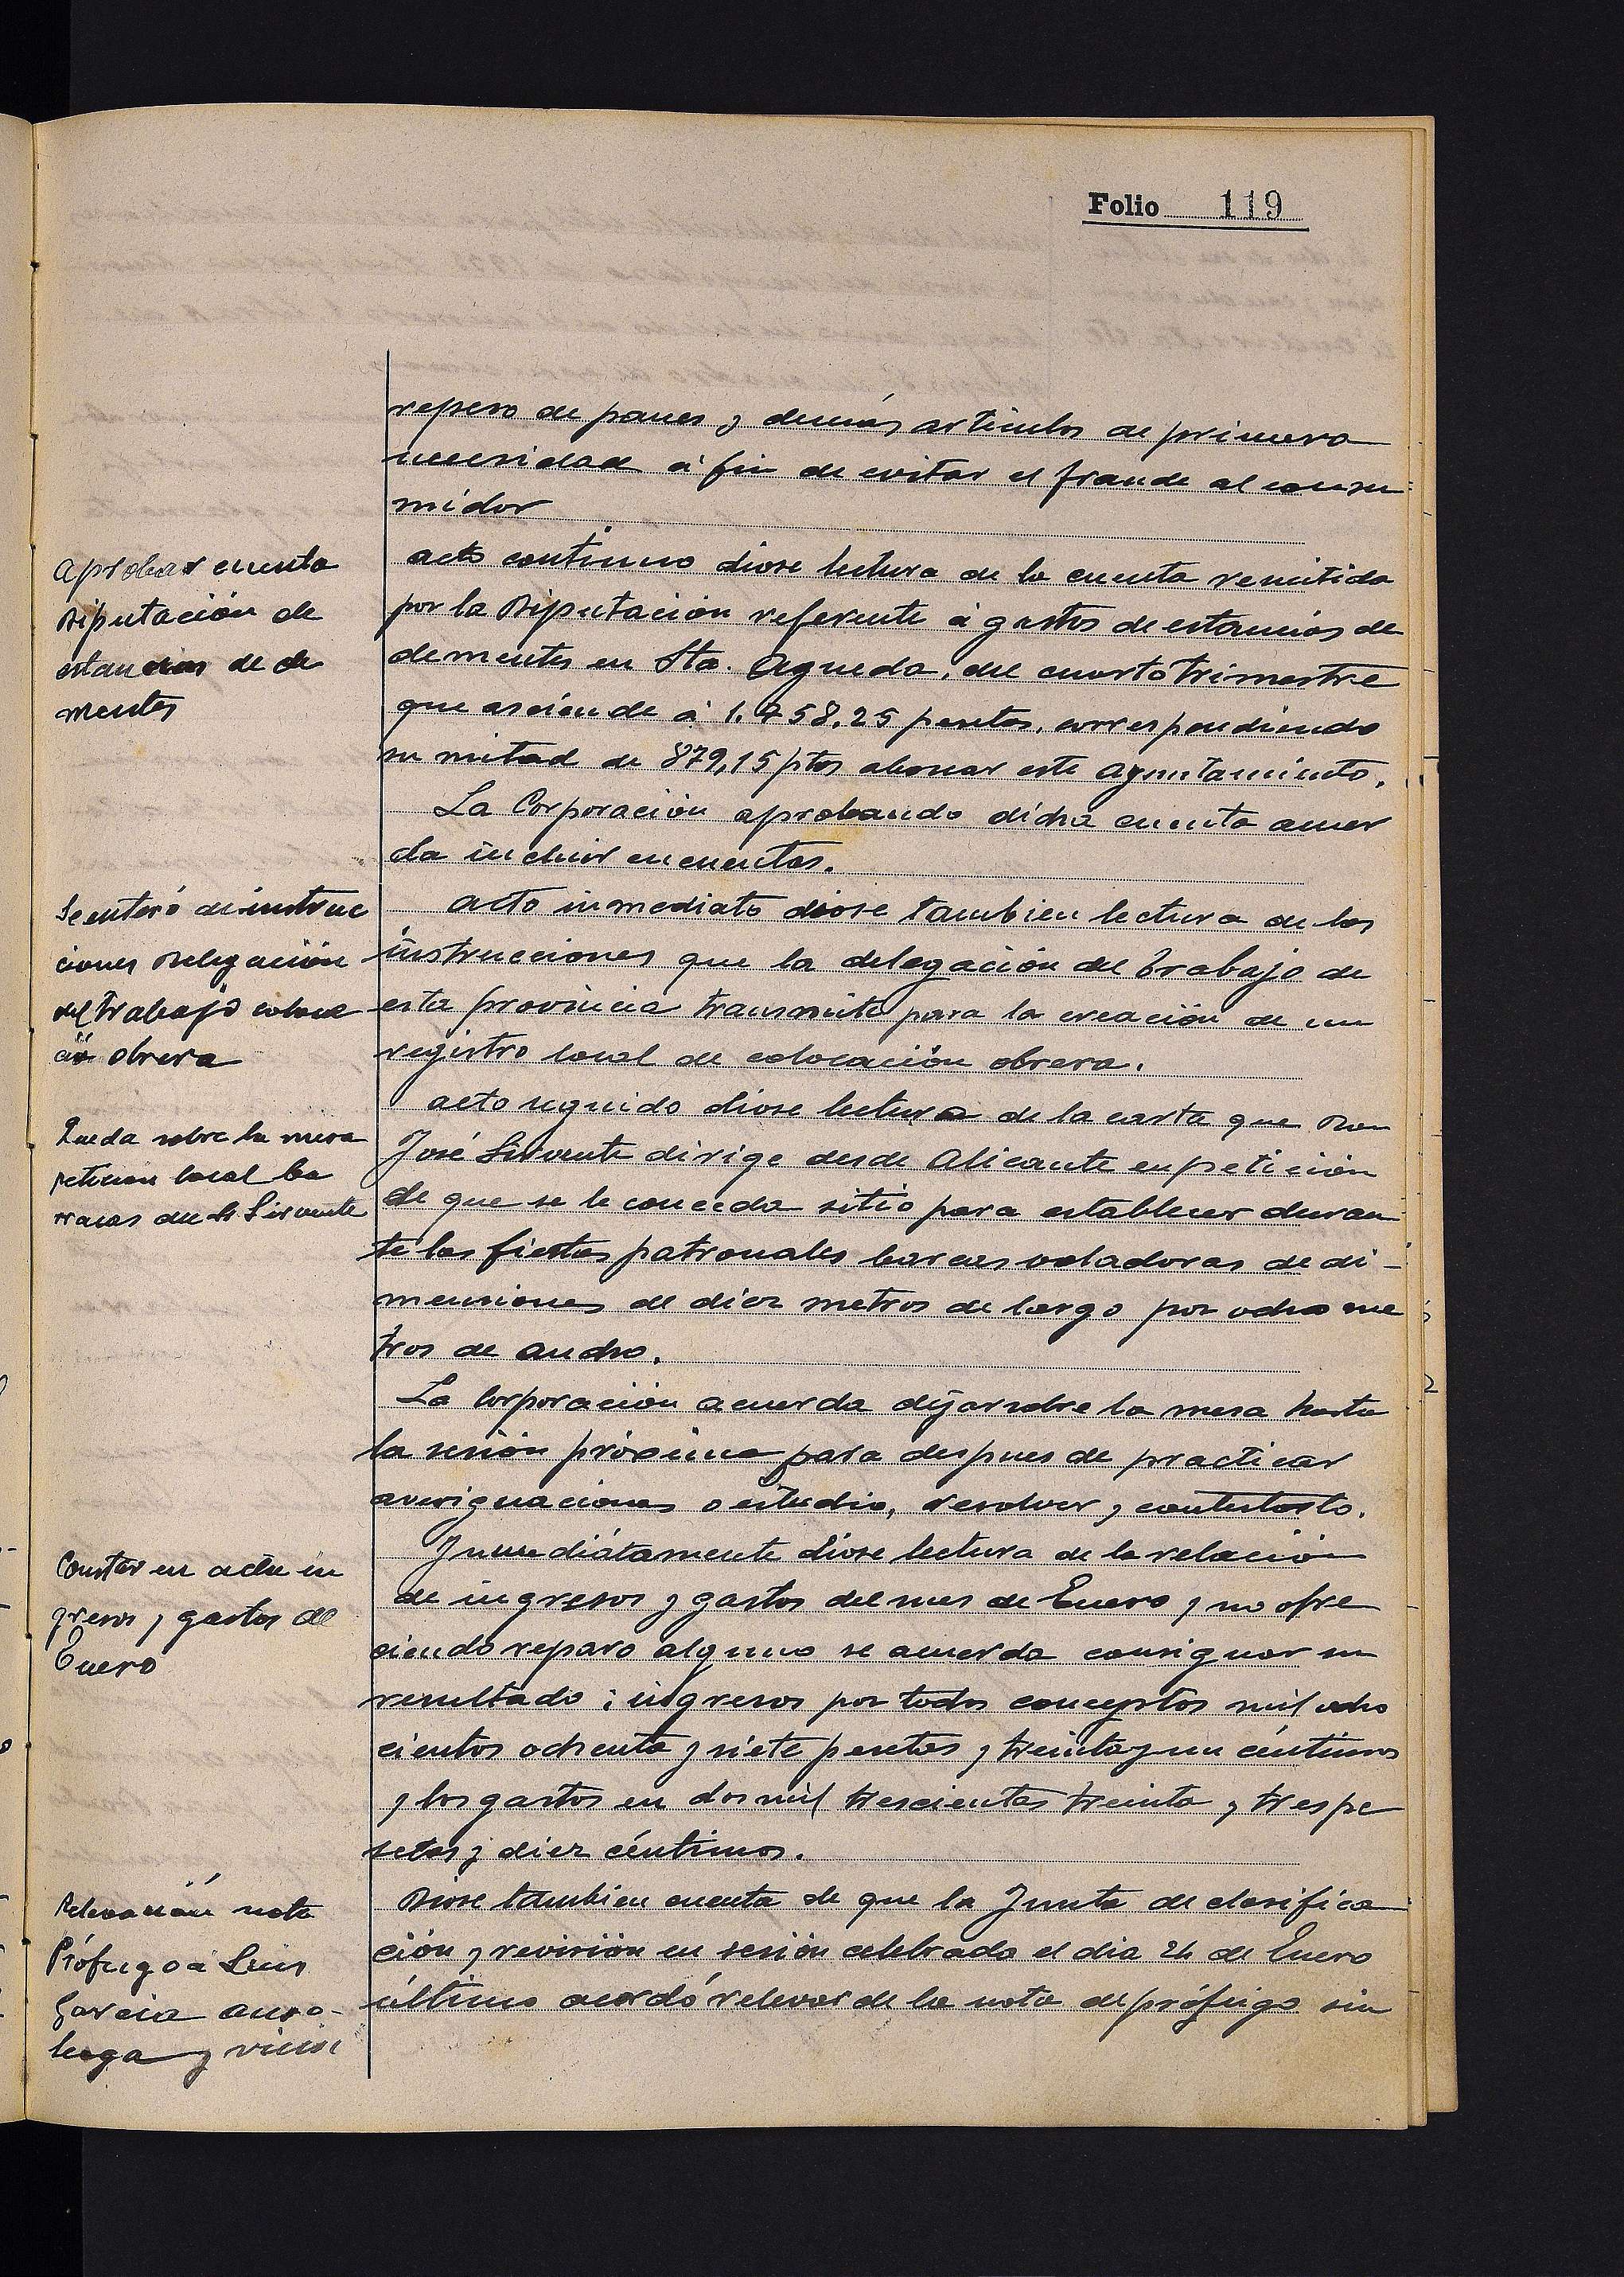 Folio 119
repeso de panes y demás artículos de primera
necesidad á fin de evitar el fraude al consu=
midor
Aprobar cuenta
Diputación de
estancias de de
mentes
Acto continuo diose lectura de la cuenta remitida
por la Diputación referente á gastos de estancias de
dementes en Sta. Agueda, del cuarto trimestre
que asciende á 1.758,25 pesetas, correspondiendo
su mitad de 879,15 ptas abonar este Ayuntamiento.
La Corporación aprobando dicha cuenta acuer
da incluir en cuentas.
Se enteró de instruc
ciones Delegación
del trabajo coloca
ción obrera
Acto inmediato diose tambien lectura de las
instrucciones que la delegación del Trabajo de
esta provincia transmite para la creación de un
registro local de colocación obrera.
Queda sobre la mesa
peticion local ba
rracas de Sr Sirvente
Acto seguido diose lectura de la carta que Don
José Sirvente dirige desde Alicante en petición
de que se le conceda sitio para establecer duran
te las fiestas patronales barcas voladoras de di-
mensiones de diez metros de largo por ocho me
tros de ancho.
La Corporación acuerda dejar sobre la mesa hasta
la sesión próxima para despues de practicar
averiguaciones o estudio, resolver y contestarlo.
Constar en acta in
gresos y gastos de
Enero
Inmediátamente diose lectura de la relación
de ingresos y gastos del mes de Enero y no ofre
ciendo reparo alguno se acuerda consignar su
resultado: ingresos por todos conceptos mil ocho
cientos ochenta y siete pesetas y treinta y un céntimos
y los gastos en dos mil trescientas treinta y tres pe
setas y diez céntimos.
Relevación nota
Prófugo á Luis
Garcia
y
Diose tambien cuenta de que la Junta de clasifica
ción y revisión en sesión celebrada el dia 24 de Enero
último acordó relevar de la nota de prófugo sin